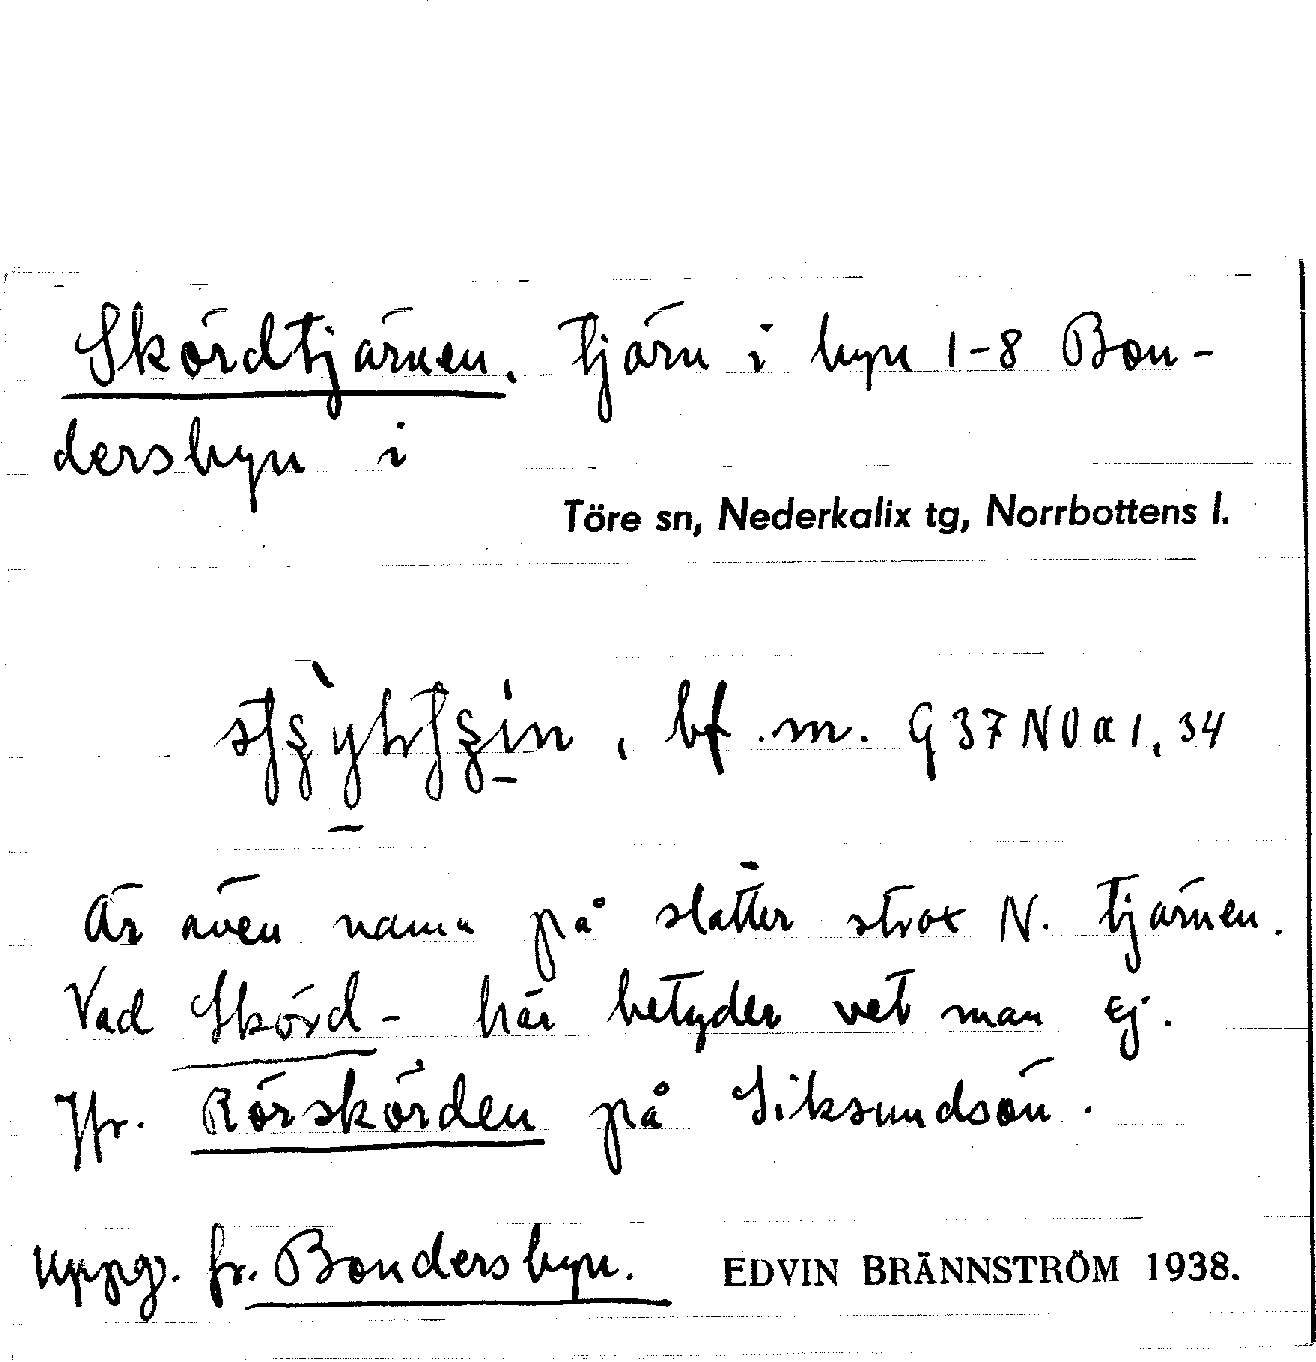 Skördtjärnen. Tjärn i byn 1-8 Bon-
dersbyn i
Töre sn, Nederkalix tg, Norrbottens l.
, bf. m. G 37 NV a 1, 34
Är även namn på slåtter strax N. tjärnen.
Vad Skörd- här betyder vet man ej.
Jfr. Rörskörden på Siksundsön.
Uppg. fr. Bondersbyn. EDVIN BRÄNNSTRÖM 1938.